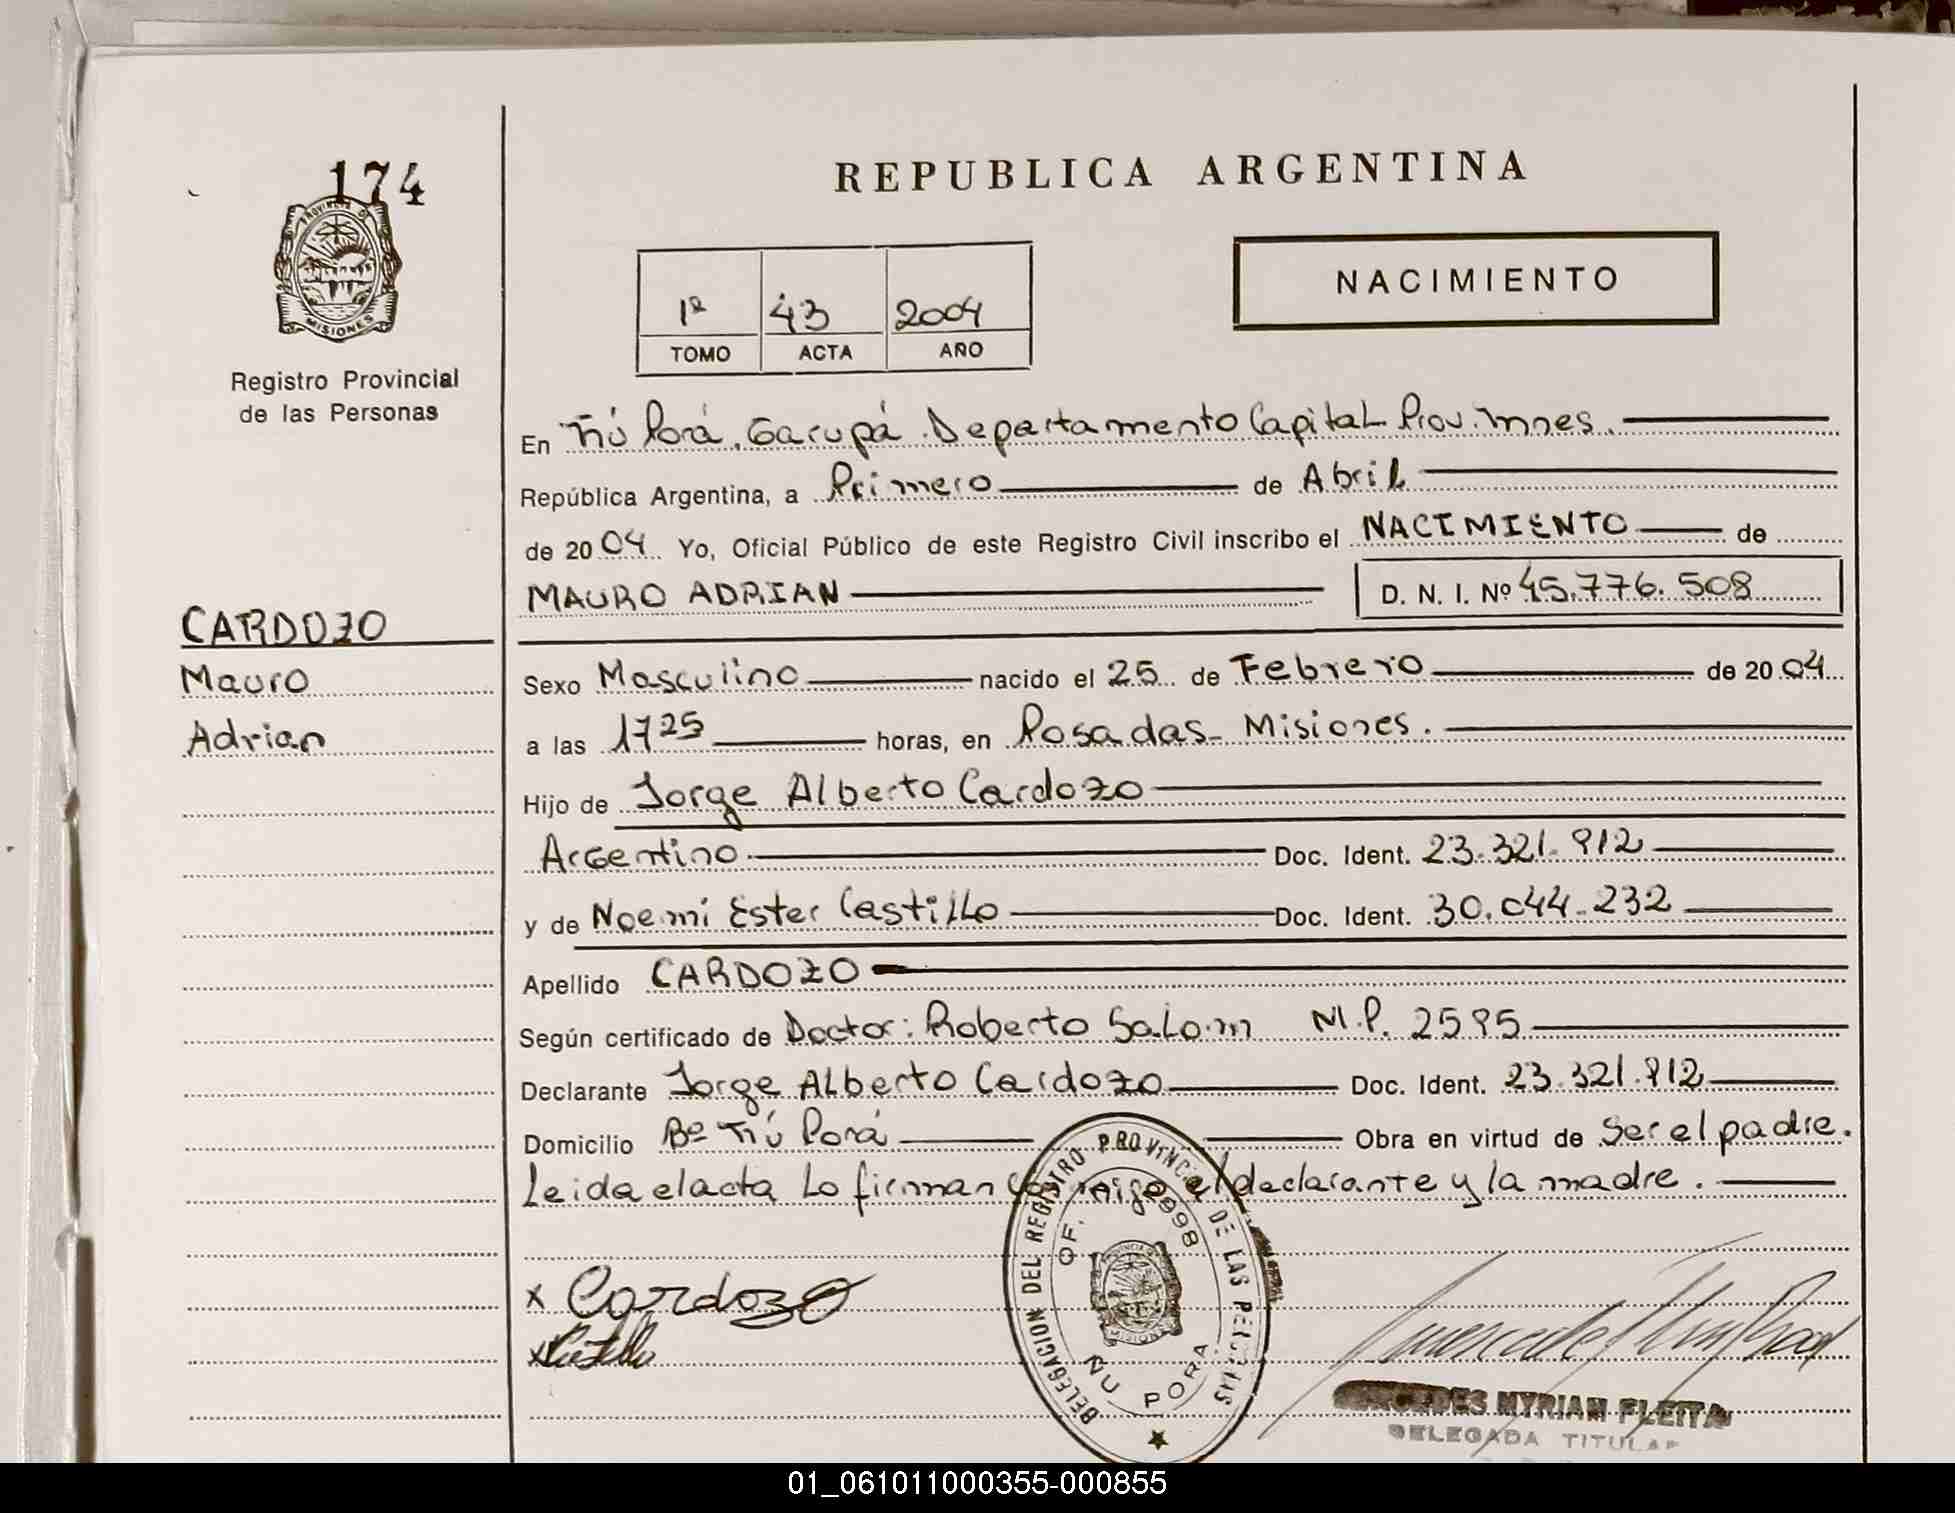 174
PROVINCIA DE
MISIONES
Registro Provincial
de las Personas
REPUBLICA ARGENTINA
1º 43 2004
TOMO ACTA AÑO
NACIMIENTO
En Ñú Porá, Garupá. Departamento Capital Prov. Mnes.
República Argentina, a Primero de Abril
de 2004 Yo, Oficial Público de este Registro Civil inscribo el NACIMIENTO de
MAURO ADRIAN D. N. I. Nº 45.776.508
CARDOZO
Mauro
Adrian
Sexo Masculino nacido el 25 de Febrero de 2004
a las 1725 horas, en Posadas - Misiones.
Hijo de Jorge Alberto Cardozo
Argentino Doc. Ident. 23.321.912
y de Noemí Ester Castillo Doc. Ident. 30.044.232
Apellido CARDOZO
Según certificado de Doctor: Roberto Salom M.P. 2595
Declarante Jorge Alberto Cardozo Doc. Ident. 23.321.912
Domicilio Bº Ñú Porá Obra en virtud de Ser el padre.
Leida el acta Lo firman conmigo el declarante y la madre.
x Cardozo
x Castillo
DELEGACION DEL REGISTRO PROVINCIAL DE LAS PERSONAS
OF. 2998
MISIONES
ÑU PORA
MERCEDES MYRIAM FLEITA
DELEGADA TITULAR
01_061011000355-000855